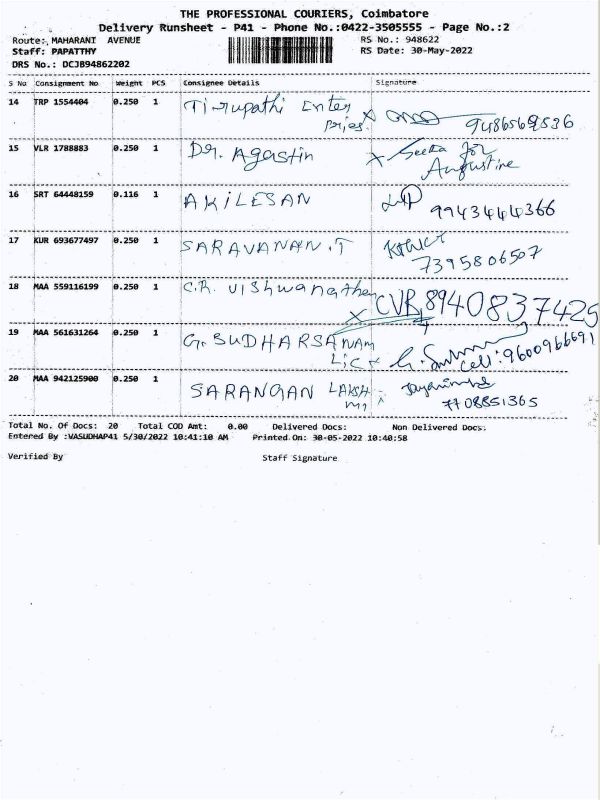 THE PROFESSIONAL COURIERS, Coimbatore
Delivery Runsheet - P41 - Phone No.:0422-3505555 - Page No.:2
Route: MAHARANI AVENUE RS No.: 948622
Staff: PAPATTHY RS Date: 30-May-2022
DRS No.: DCJB94862202
S No Consignment No Weight PCS Consignee Details Signature
14 TRP 1554404 0.250 1 Tirupathi Enter
pries. x 9486569536
15 VLR 1788883 0.250 1 DR. Agastin x Seetha for
Augustine
16 SRT 64448159 0.116 1 AKILESAN
9943444366
17 KUR 693677497 0.250 1 SARAVANAN.T
7395806507
18 MAA 559116199 0.250 1 C.R. Vishwanathan
x CVR 8940837425
19 MAA 561631264 0.250 1 G. SUDHARSANAM
LIC x cell: 9600966691
20 MAA 942125900 0.250 1 SARANGAN LAKSH
mi x 7708851365
Total No. Of Docs: 20 Total COD Amt: 0.00 Delivered Docs: Non Delivered Docs:
Entered By :VASUDHAP41 5/30/2022 10:41:10 AM Printed On: 30-05-2022 10:40:58
Verified By Staff Signature